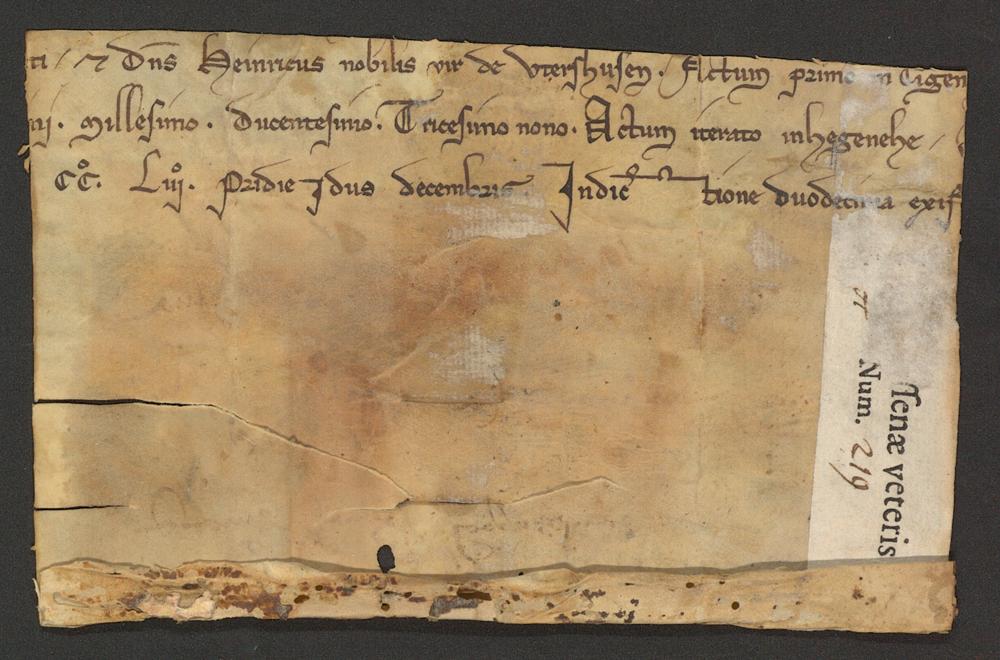 ti / ⁊ Dn̄s Heinricus nobilis vir de Vtershusen. Actum primo in Cigen
iij. Millesimo. Ducentesimo. Tricesimo nono. Actum iterato in hegenehe /
CͦC. Liiͦj. Pridie Idus decembris Indic̄ tione duodecima exis
Ienæ veteris
Num. 219